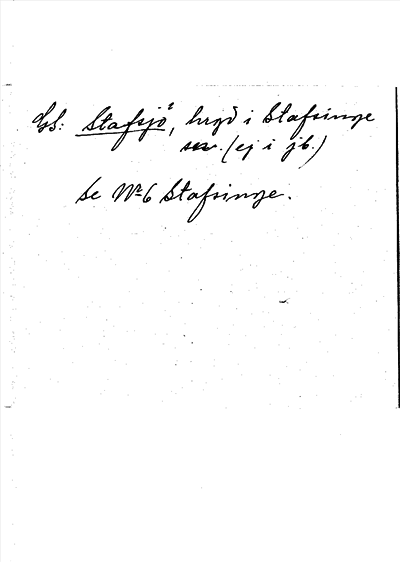 GS: Stafsjö, hrgd i Stafsinge
sn. (ej i jb.)
Se Nr 6 Stafsinge.